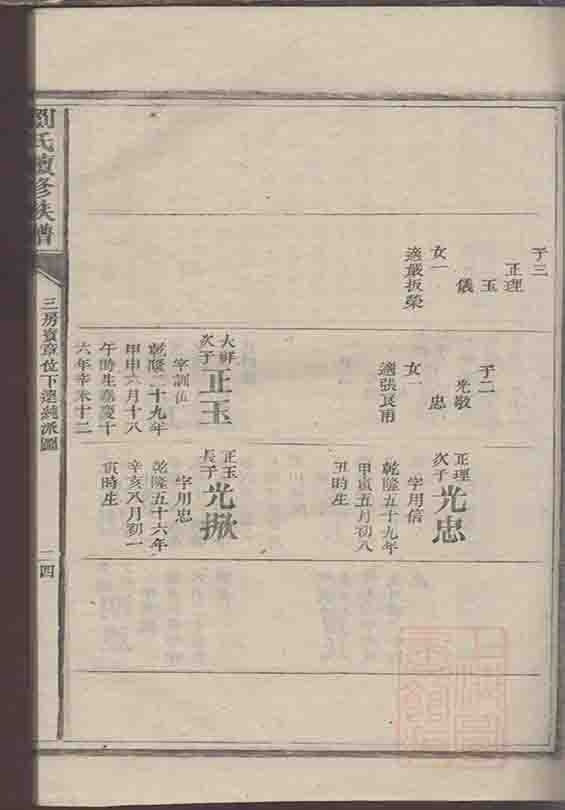 劉氏續修族譜
三房寶章位下達純派圖
二四
子三
正理
玉
儀
女一
適嚴扳榮
子二
光敬
忠
女一
適張良甫
大
次子
正玉
字訓伍
乾隆二十九年
甲申六月十八
午時生嘉慶十
六年辛未十二
正理
次子
光忠
字用信
乾隆五十九年
甲寅五月初八
丑時生
正玉
長子
光揪
字用忠
乾隆五十六年
辛亥八月初一
寅時生